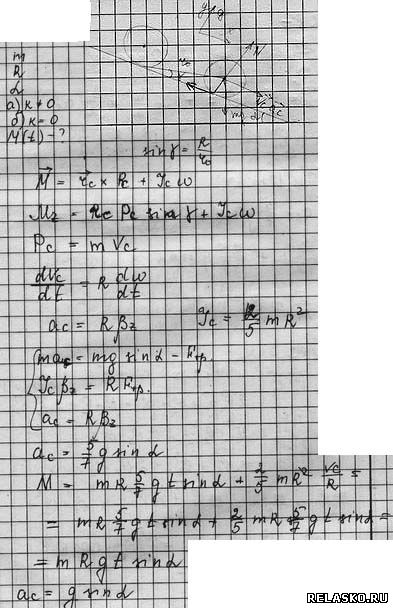 m
R
α
а) k ≠ 0
б) k = 0
M(t) - ?
y
x
N
mg
α
a_c
r_0
sin γ = R/r_0
M⃗ = r⃗_c × P_c + J_c ω
M_z = r_c P_c sin γ + J_c ω
P_c = m V_c
dV_c/dt = R dω/dt
a_c = R β_z J_c = 2/5 m R²
ma_c = mg sin α - F_тр.
J_c β_z = R F_тр.
a_c = R β_z
a_c = 5/7 g sin α
M = m R 5/7 g t sin α + 2/5 m R² V_c/R =
= m R 5/7 g t sin α + 2/5 m R 5/7 g t sin α =
= m R g t sin α
a_c = g sin α
RELASKO.RU